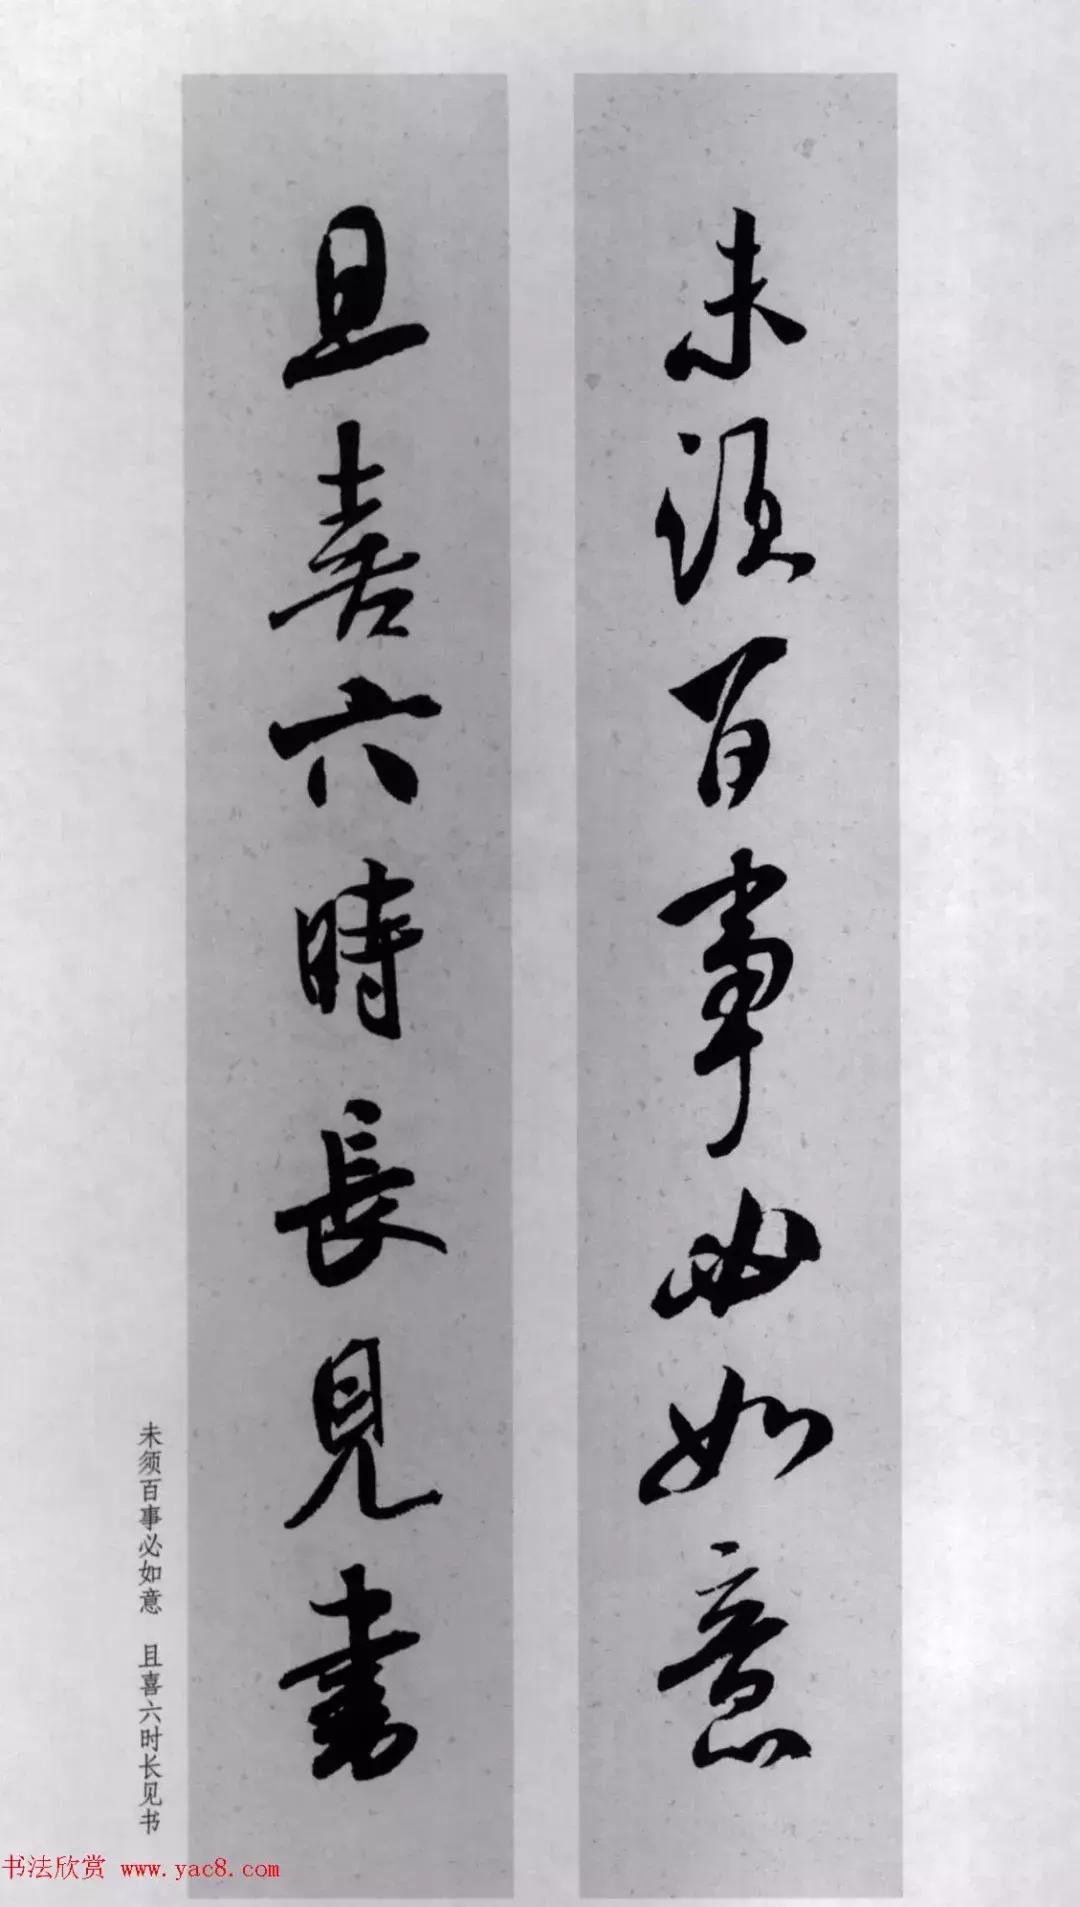 未須百事必如意
且喜六時長見書
未须百事必如意 且喜六时长见书
书法欣赏 www.yac8.com